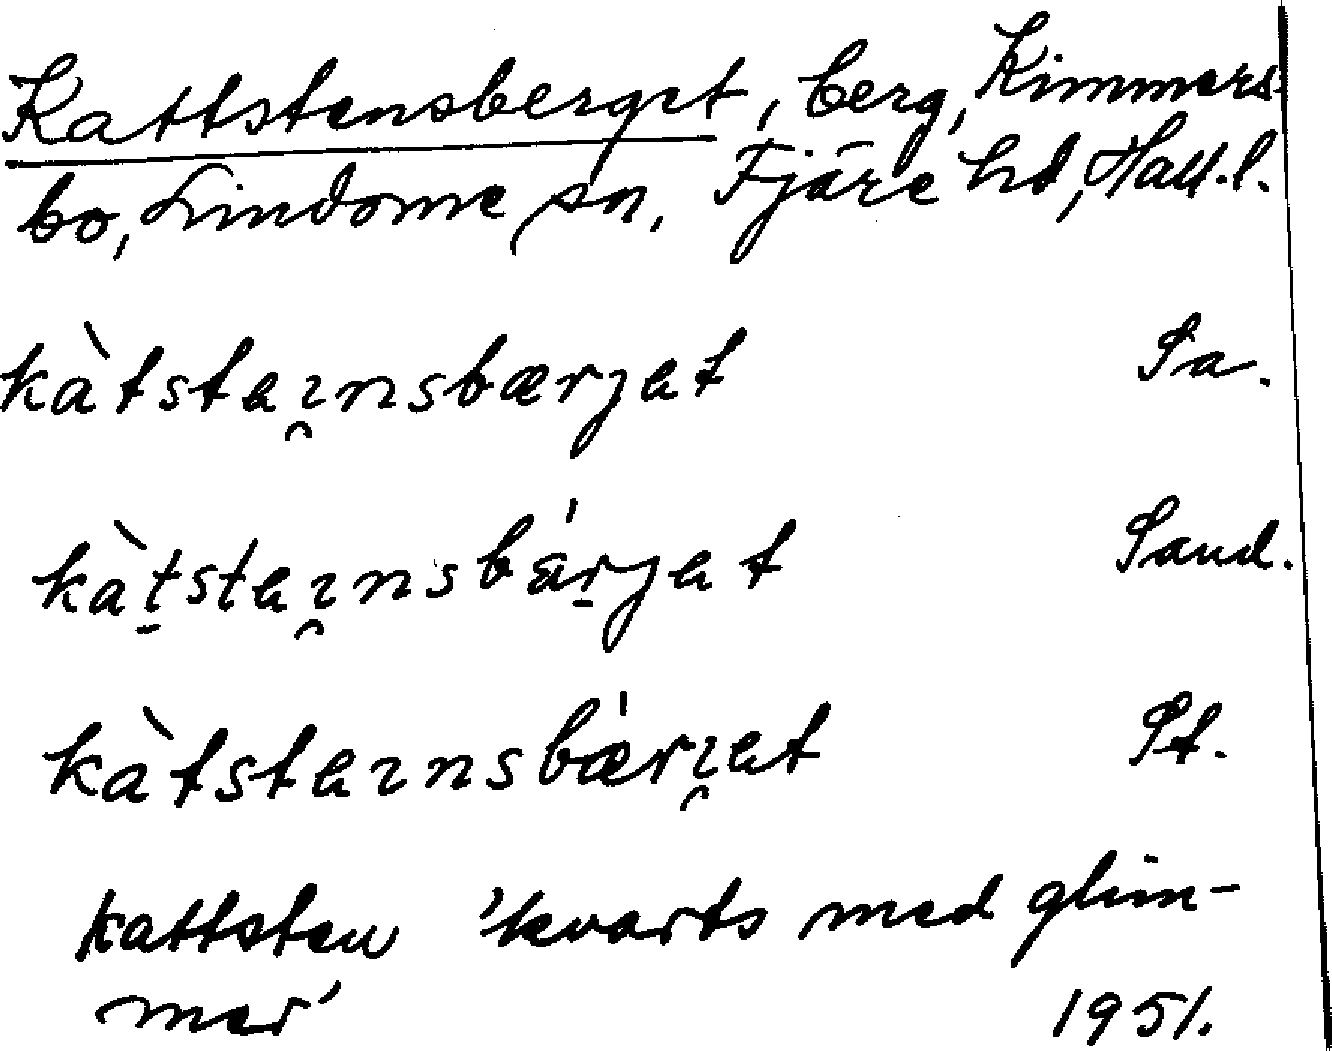 Kattstensberget, berg, Kimmers-
bo, Lindome sn, Fjäre hd, Hall.l.
kàtstaı̯nsbærjat Sa.
kàt̠staı̯nsbä́r̠jat Sand.
kàtstaınsbǽrı̯at St.
kattsten 'kvarts med glim-
mer' 1951.